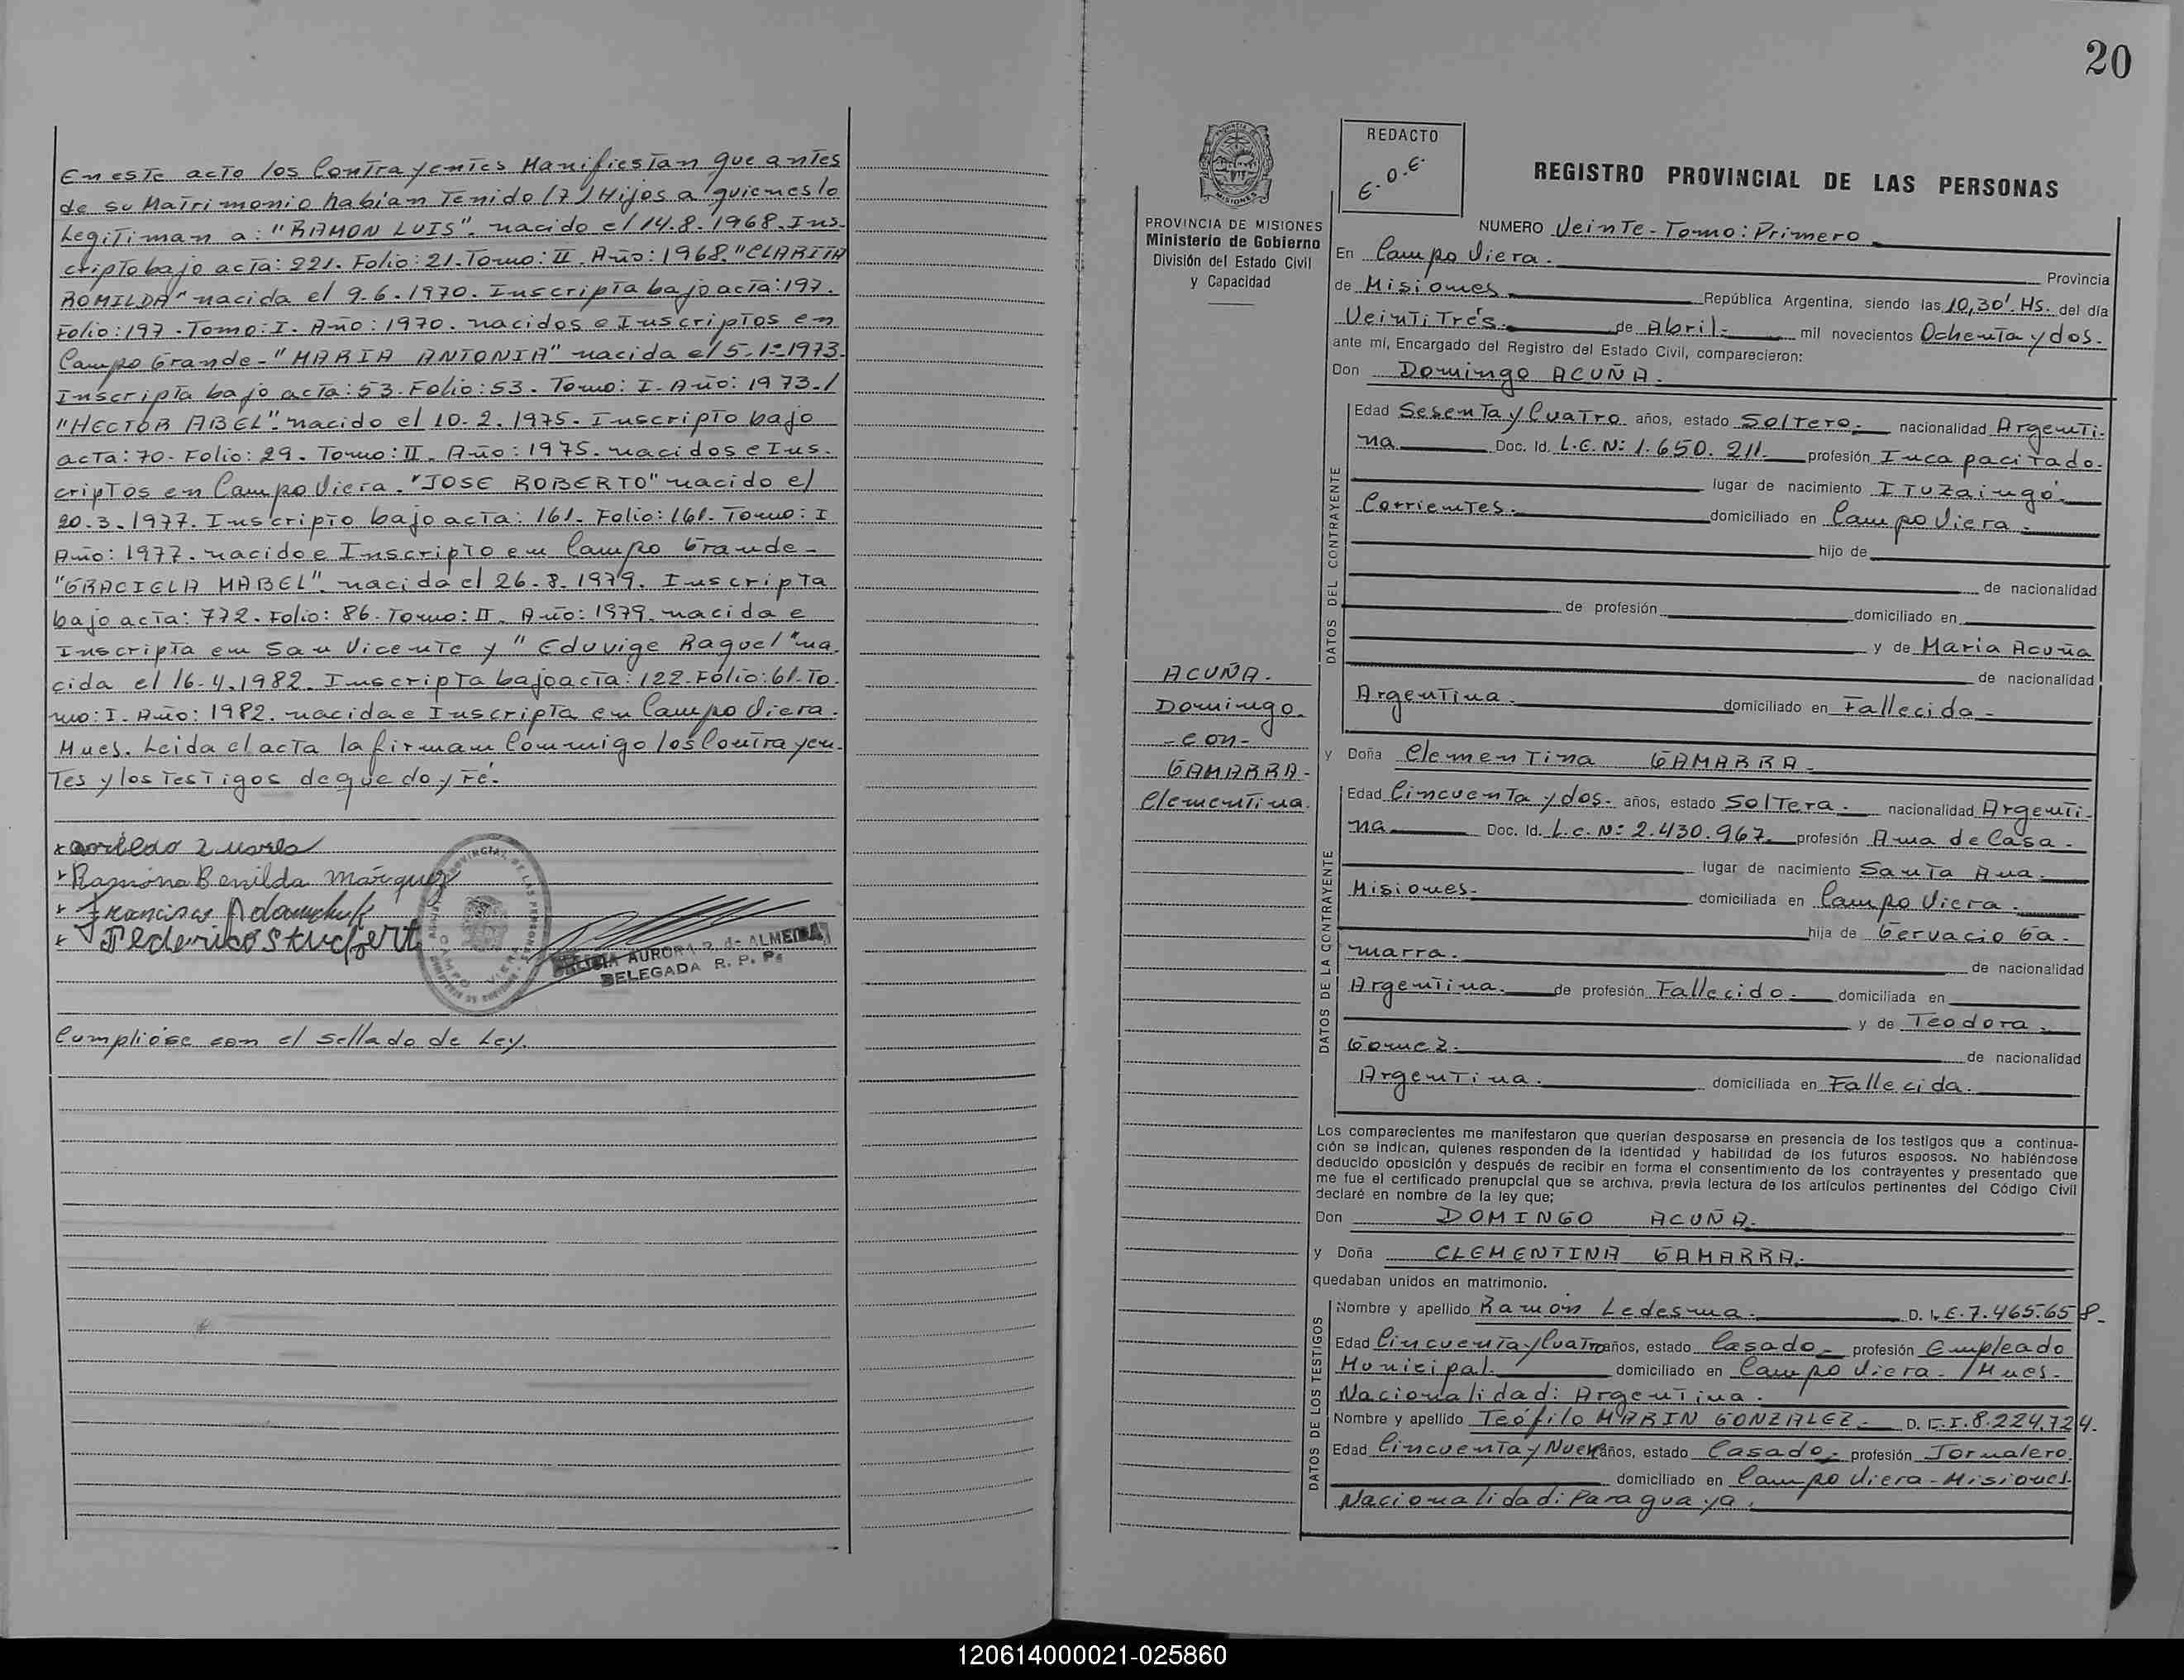 En este acto los Contrayentes Manifiestan que antes
de su Matrimonio habían Tenido (7) Hijos a quienes lo
Legitiman a: "RAMON LUIS". nacido el 14.8.1968. Ins-
cripto bajo acta: 221. Folio: 21. Tomo: II. Año: 1968. "CLARITA
ROMILDA" nacida el 9.6.1970. Inscripta bajo acta: 197.
Folio: 197. Tomo: I. Año: 1970. nacidos e Inscriptos en
Campo Grande - "MARIA ANTONIA" nacida el 5.1º.1973.
Inscripta bajo acta: 53. Folio: 53. Tomo: I. Año: 1973./
"HECTOR ABEL". nacido el 10.2.1975. Inscripto bajo
acta: 70. Folio: 29. Tomo: II. Año: 1975. nacidos e Ins-
criptos en Campo Viera. "JOSE ROBERTO" nacido el
20.3.1977. Inscripto bajo acta: 161. Folio: 161. Tomo: I
Año: 1977. nacido e Inscripto en Campo Grande -
"GRACIELA MABEL". nacida el 26.8.1979. Inscripta
bajo acta: 772. Folio: 86. Tomo: II. Año: 1979. nacida e
Inscripta en San Vicente y "Eduvige Raquel" na-
cida el 16.4.1982. Inscripta bajo acta: 122. Folio: 61. To-
mo: I. Año: 1982. nacida e Inscripta en Campo Viera.
Mnes. Leida el acta la firman Conmigo los Contrayen-
Tes y los Testigos de que doy Fé.
Ramona Benilda Márquez
Francisco
Federico Stuckert
AURORA de ALMEIDA
DELEGADA R. P. P.
Cumplióse con el sellado de Ley.
20
REDACTO
E.O.E.
REGISTRO PROVINCIAL DE LAS PERSONAS
PROVINCIA DE MISIONES
Ministerio de Gobierno
División del Estado Civil
y Capacidad
NUMERO Veinte - Tomo: Primero
En Campo Viera. Provincia
de Misiones República Argentina, siendo las 10,30'. HS. del día
Veintitrés de Abril mil novecientos Ochenta y dos.
ante mí, Encargado del Registro del Estado Civil, comparecieron:
Don Domingo ACUÑA.
DATOS DEL CONTRAYENTE
Edad Sesenta y Cuatro años, estado Soltero nacionalidad Argenti-
na Doc. Id. L.E. Nº 1.650.211. profesión Incapacitado.
lugar de nacimiento Ituzaingó
Corrientes. domiciliado en Campo Viera.
hijo de
de nacionalidad
de profesión domiciliado en
y de Maria Acuña
de nacionalidad
Argentina domiciliado en Fallecida
ACUÑA.
Domingo.
-con-
GAMARRA-
Clementina.
y Doña Clementina GAMARRA
DATOS DE LA CONTRAYENTE
Edad Cincuenta y dos. años, estado Soltera. nacionalidad Argenti-
na Doc. Id. L.C. Nº 2.430.967. profesión Ama de Casa -
lugar de nacimiento Santa Ana.
Misiones domiciliada en Campo Viera.
hija de Gervacio Ga-
marra. de nacionalidad
Argentina. de profesión Fallecido. domiciliada en
y de Teodora
Gomez. de nacionalidad
Argentina. domiciliada en Fallecida.
Los comparecientes me manifestaron que querían desposarse en presencia de los testigos que a continua-
ción se indican, quienes responden de la identidad y habilidad de los futuros esposos. No habiéndose
deducido oposición y después de recibir en forma el consentimiento de los contrayentes y presentado que
me fue el certificado prenupcial que se archiva, previa lectura de los artículos pertinentes del Código Civil
declaré en nombre de la ley que;
Don DOMINGO ACUÑA.
y Doña CLEMENTINA GAMARRA.
quedaban unidos en matrimonio.
DATOS DE LOS TESTIGOS
Nombre y apellido Ramón Ledesma. D. L.E. 7.465.658-
Edad Cincuenta y Cuatro años, estado Casado profesión Empleado
Municipal. domiciliado en Campo Viera. /Mnes.
Nacionalidad: Argentina.
Nombre y apellido Teófilo MARIN GONZALEZ. D. C.I. 8.224.724.
Edad Cincuenta y Nueve años, estado Casado profesión Jornalero
domiciliado en Campo Viera - Misiones.
Nacionalidad: Paraguaya.
120614000021-025860